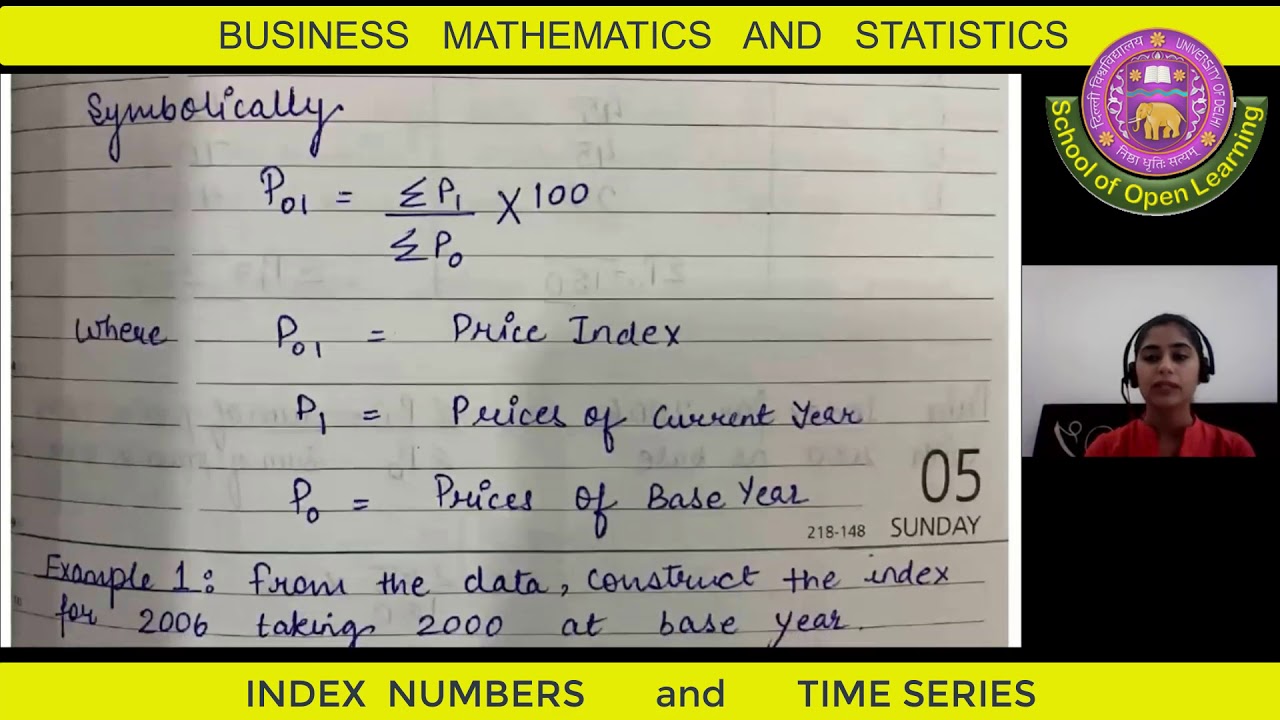 BUSINESS MATHEMATICS AND STATISTICS
दिल्ली विश्वविद्यालय
UNIVERSITY OF DELHI
निष्ठा धृतिः सत्यम्
School of Open Learning
Symbolically
P01 = ΣP1 / ΣP0 X 100
Where P01 = Price Index
P1 = Prices of Current Year
P0 = Prices of Base Year
05
218-148 SUNDAY
Example 1: From the data, construct the index
for 2006 taking 2000 at base year.
INDEX NUMBERS and TIME SERIES